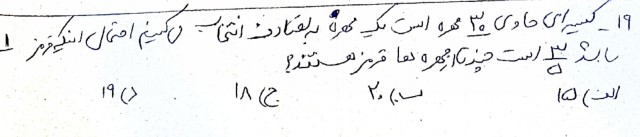 ۱۹_ کیسه‌ای حاوی ۳۰ مهره است یک مهره به تصادف انتخاب می‌کنیم احتمال اینکه قرمز ۱
باشد ۳/۵ است چند تا از مهره ها قرمز هستند؟
الف) ۱۵ ب) ۲۰ ج) ۱۸ د) ۱۹